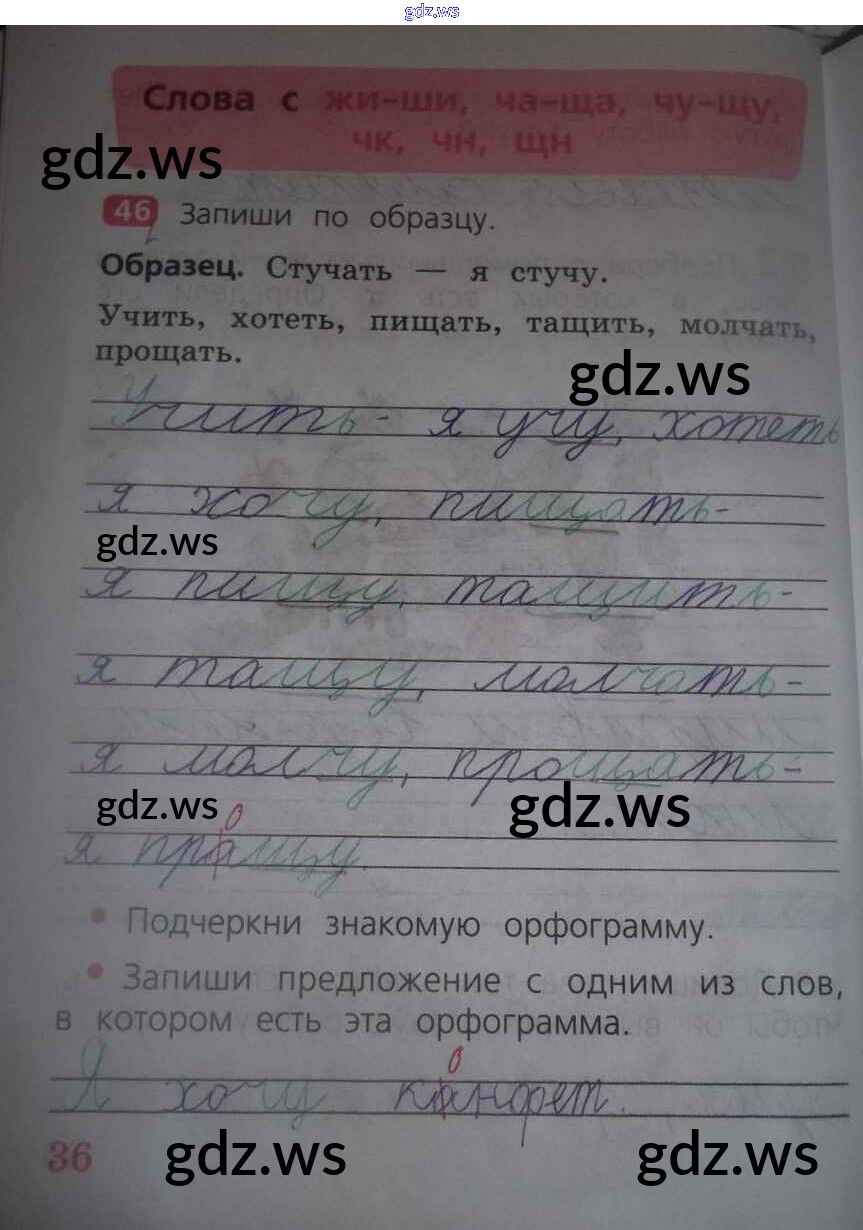 gdz.ws
Слова с жи–ши, ча–ща, чу–щу,
чк, чн, щн
gdz.ws
46 Запиши по образцу.
Образец. Стучать — я стучу.
Учить, хотеть, пищать, тащить, молчать,
прощать.
gdz.ws
Учить- я учу, хотеть
я хочу, пищать-
gdz.ws
я пищу, тащить-
я тащу, молчать-
я молчу, прощать-
gdz.ws gdz.ws
о
я пращу.
• Подчеркни знакомую орфограмму.
• Запиши предложение с одним из слов,
в котором есть эта орфограмма.
о
Я хочу канфет.
36 gdz.ws gdz.ws